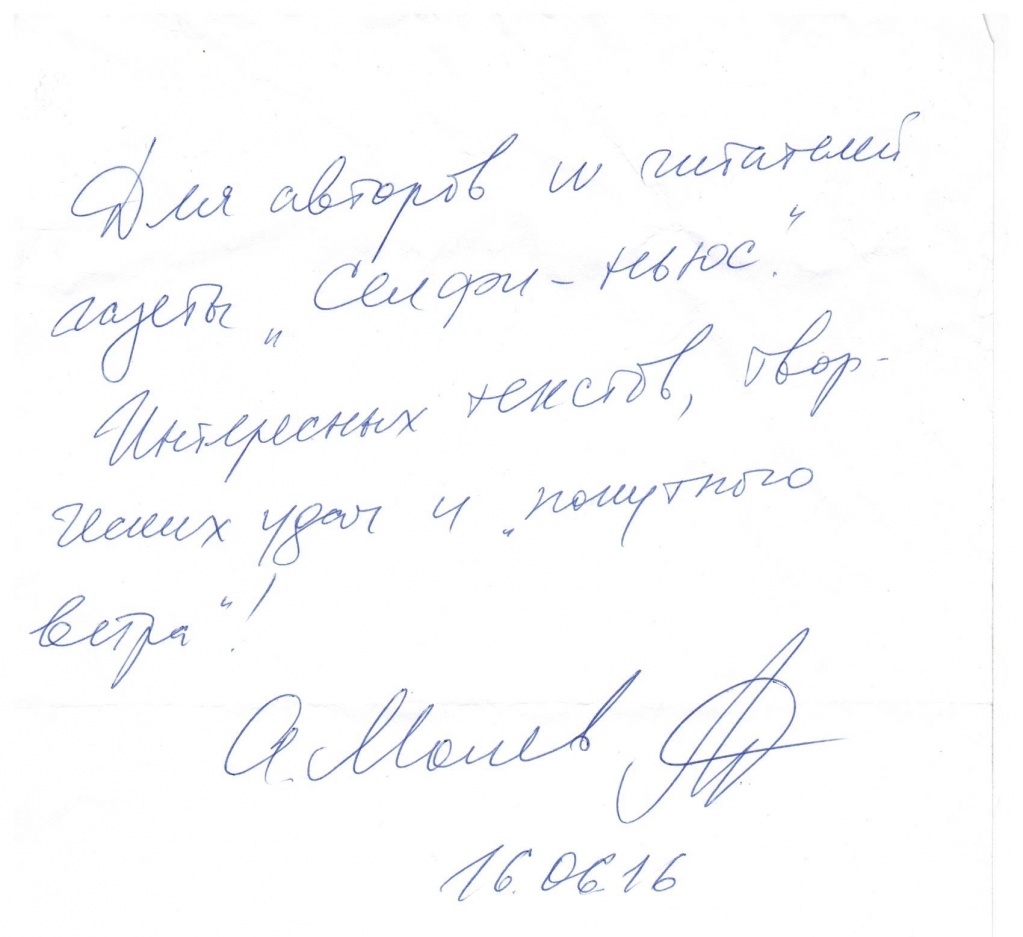 Для авторов и читателей
газеты „Селфи-ньюс."
Интересных текстов, твор-
ческих удач и „попутного
ветра"!
А. Молев
16.06.16